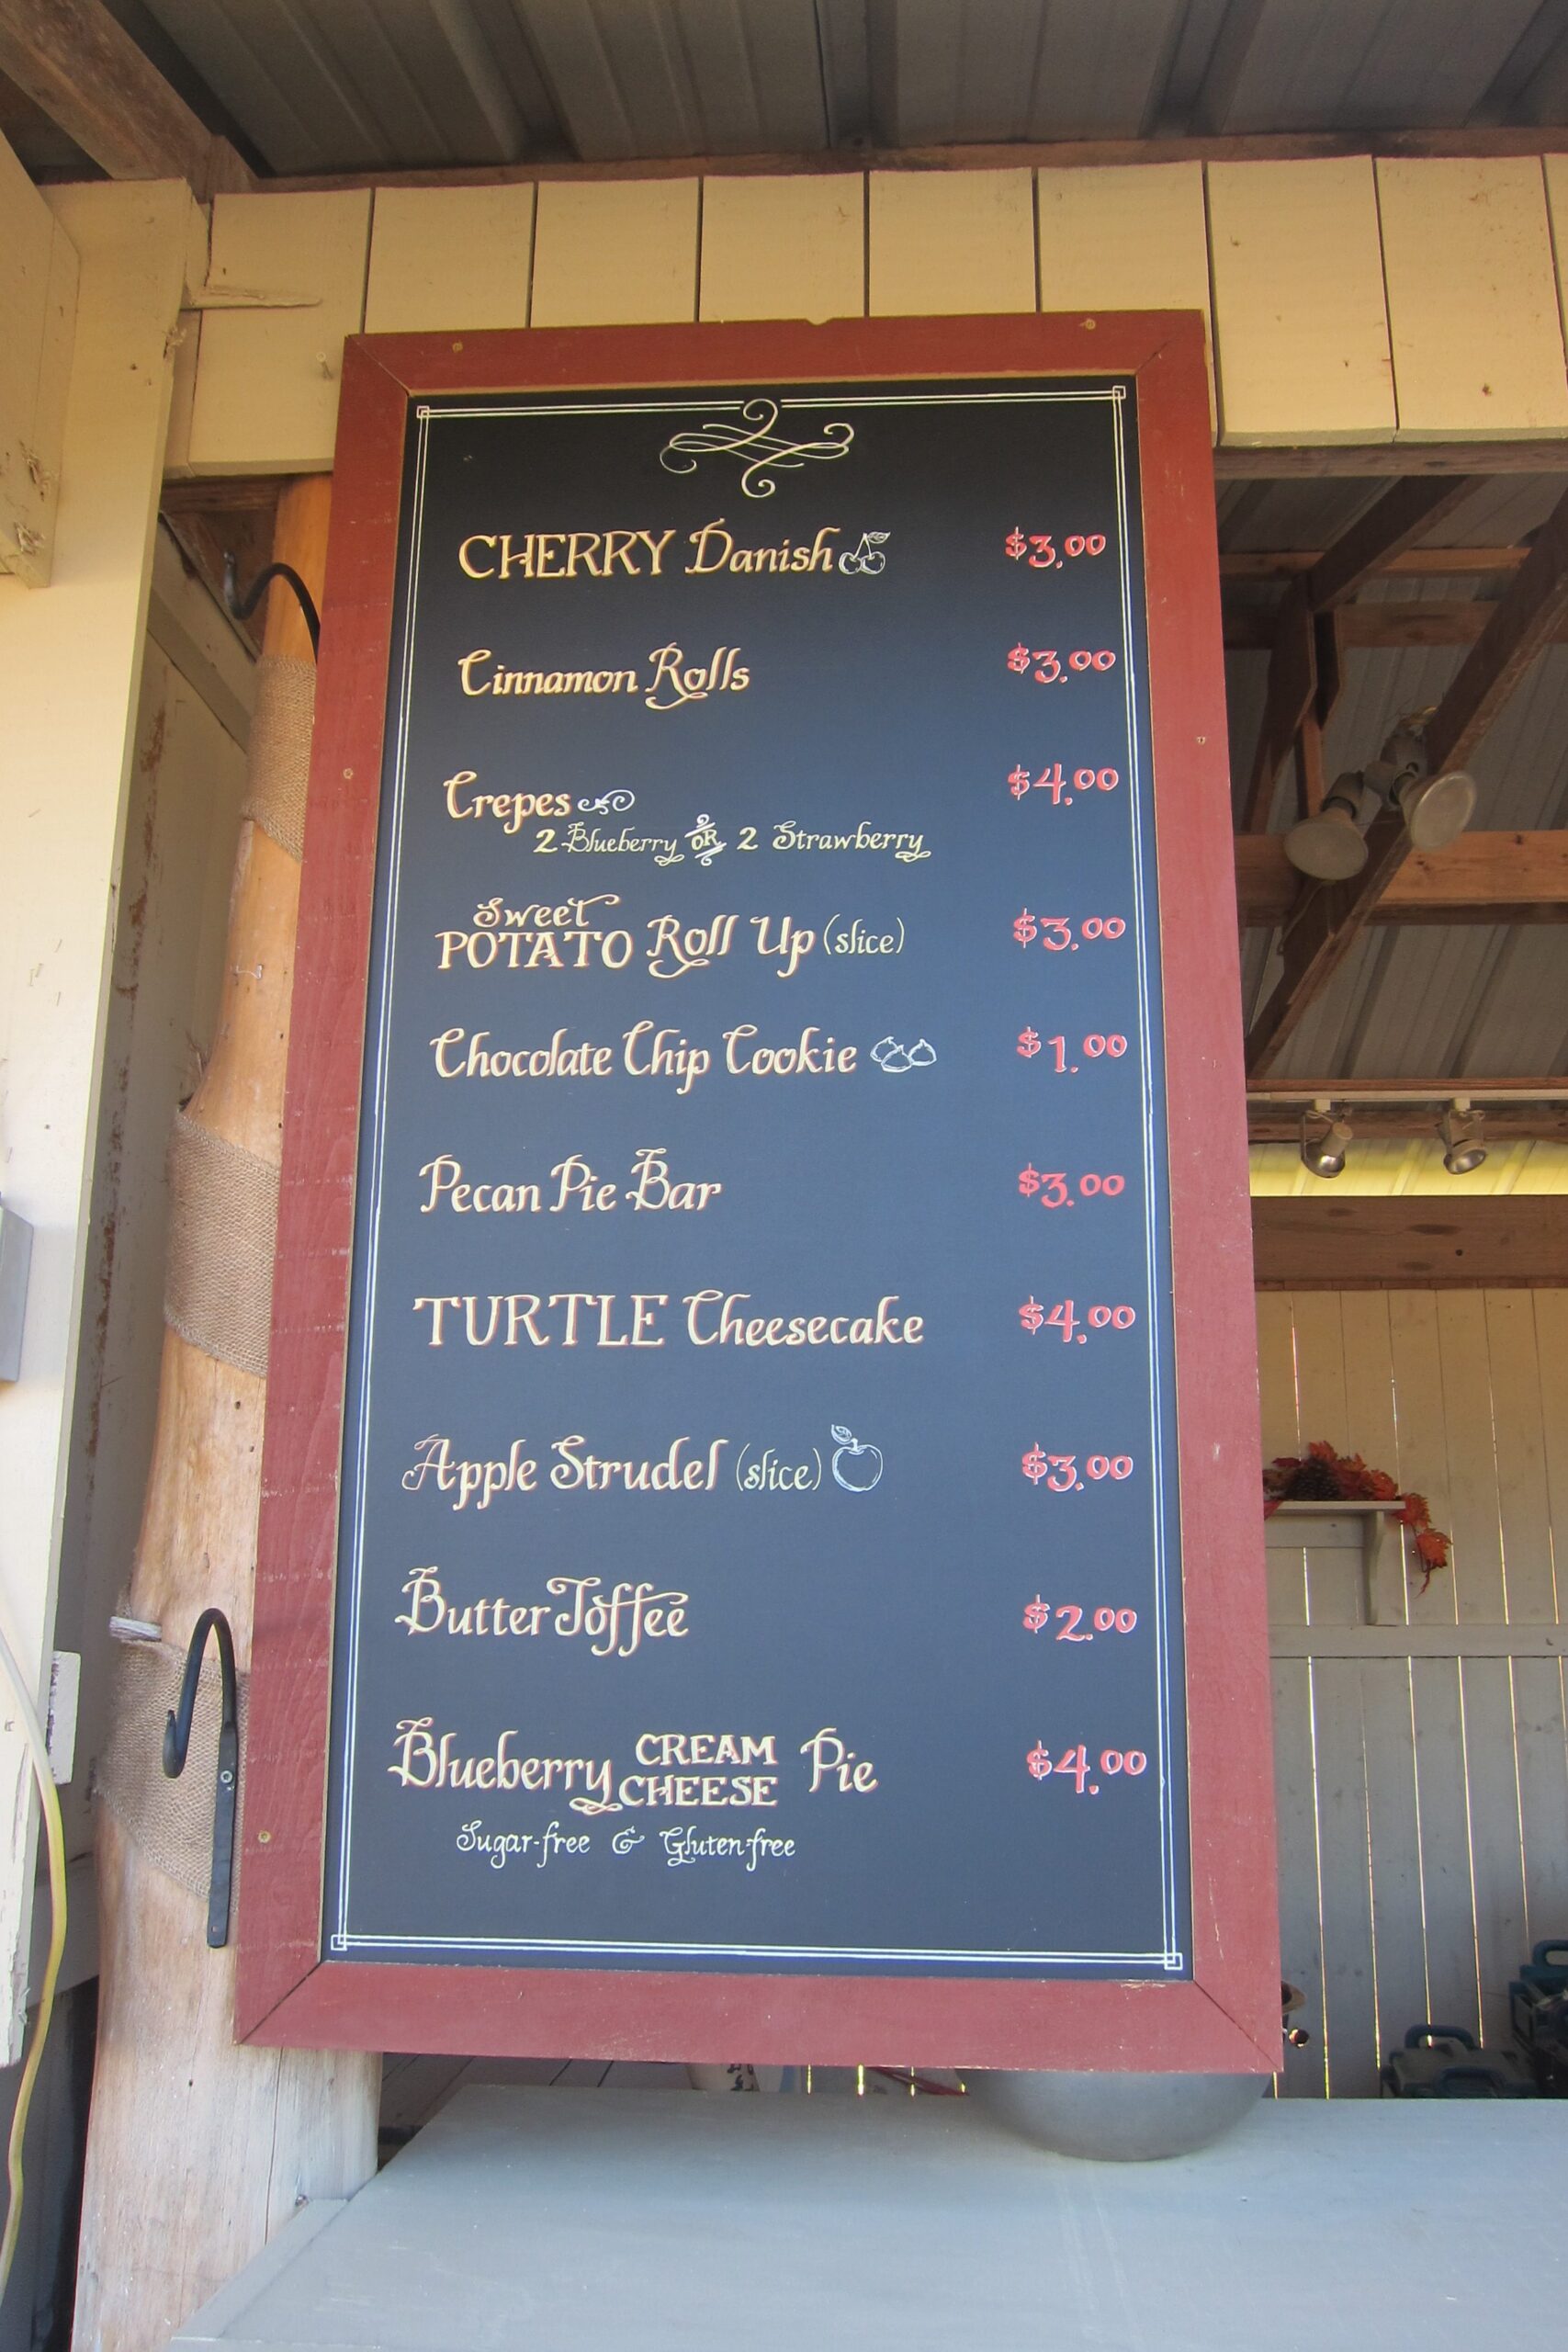 CHERRY Danish $3.00
Cinnamon Rolls $3.00
Crepes $4.00
2 Blueberry OR 2 Strawberry
Sweet POTATO Roll Up (slice) $3.00
Chocolate Chip Cookie $1.00
Pecan Pie Bar $3.00
TURTLE Cheesecake $4.00
Apple Strudel (slice) $3.00
Butter Toffee $2.00
Blueberry CREAM CHEESE Pie $4.00
Sugar-free & Gluten-free